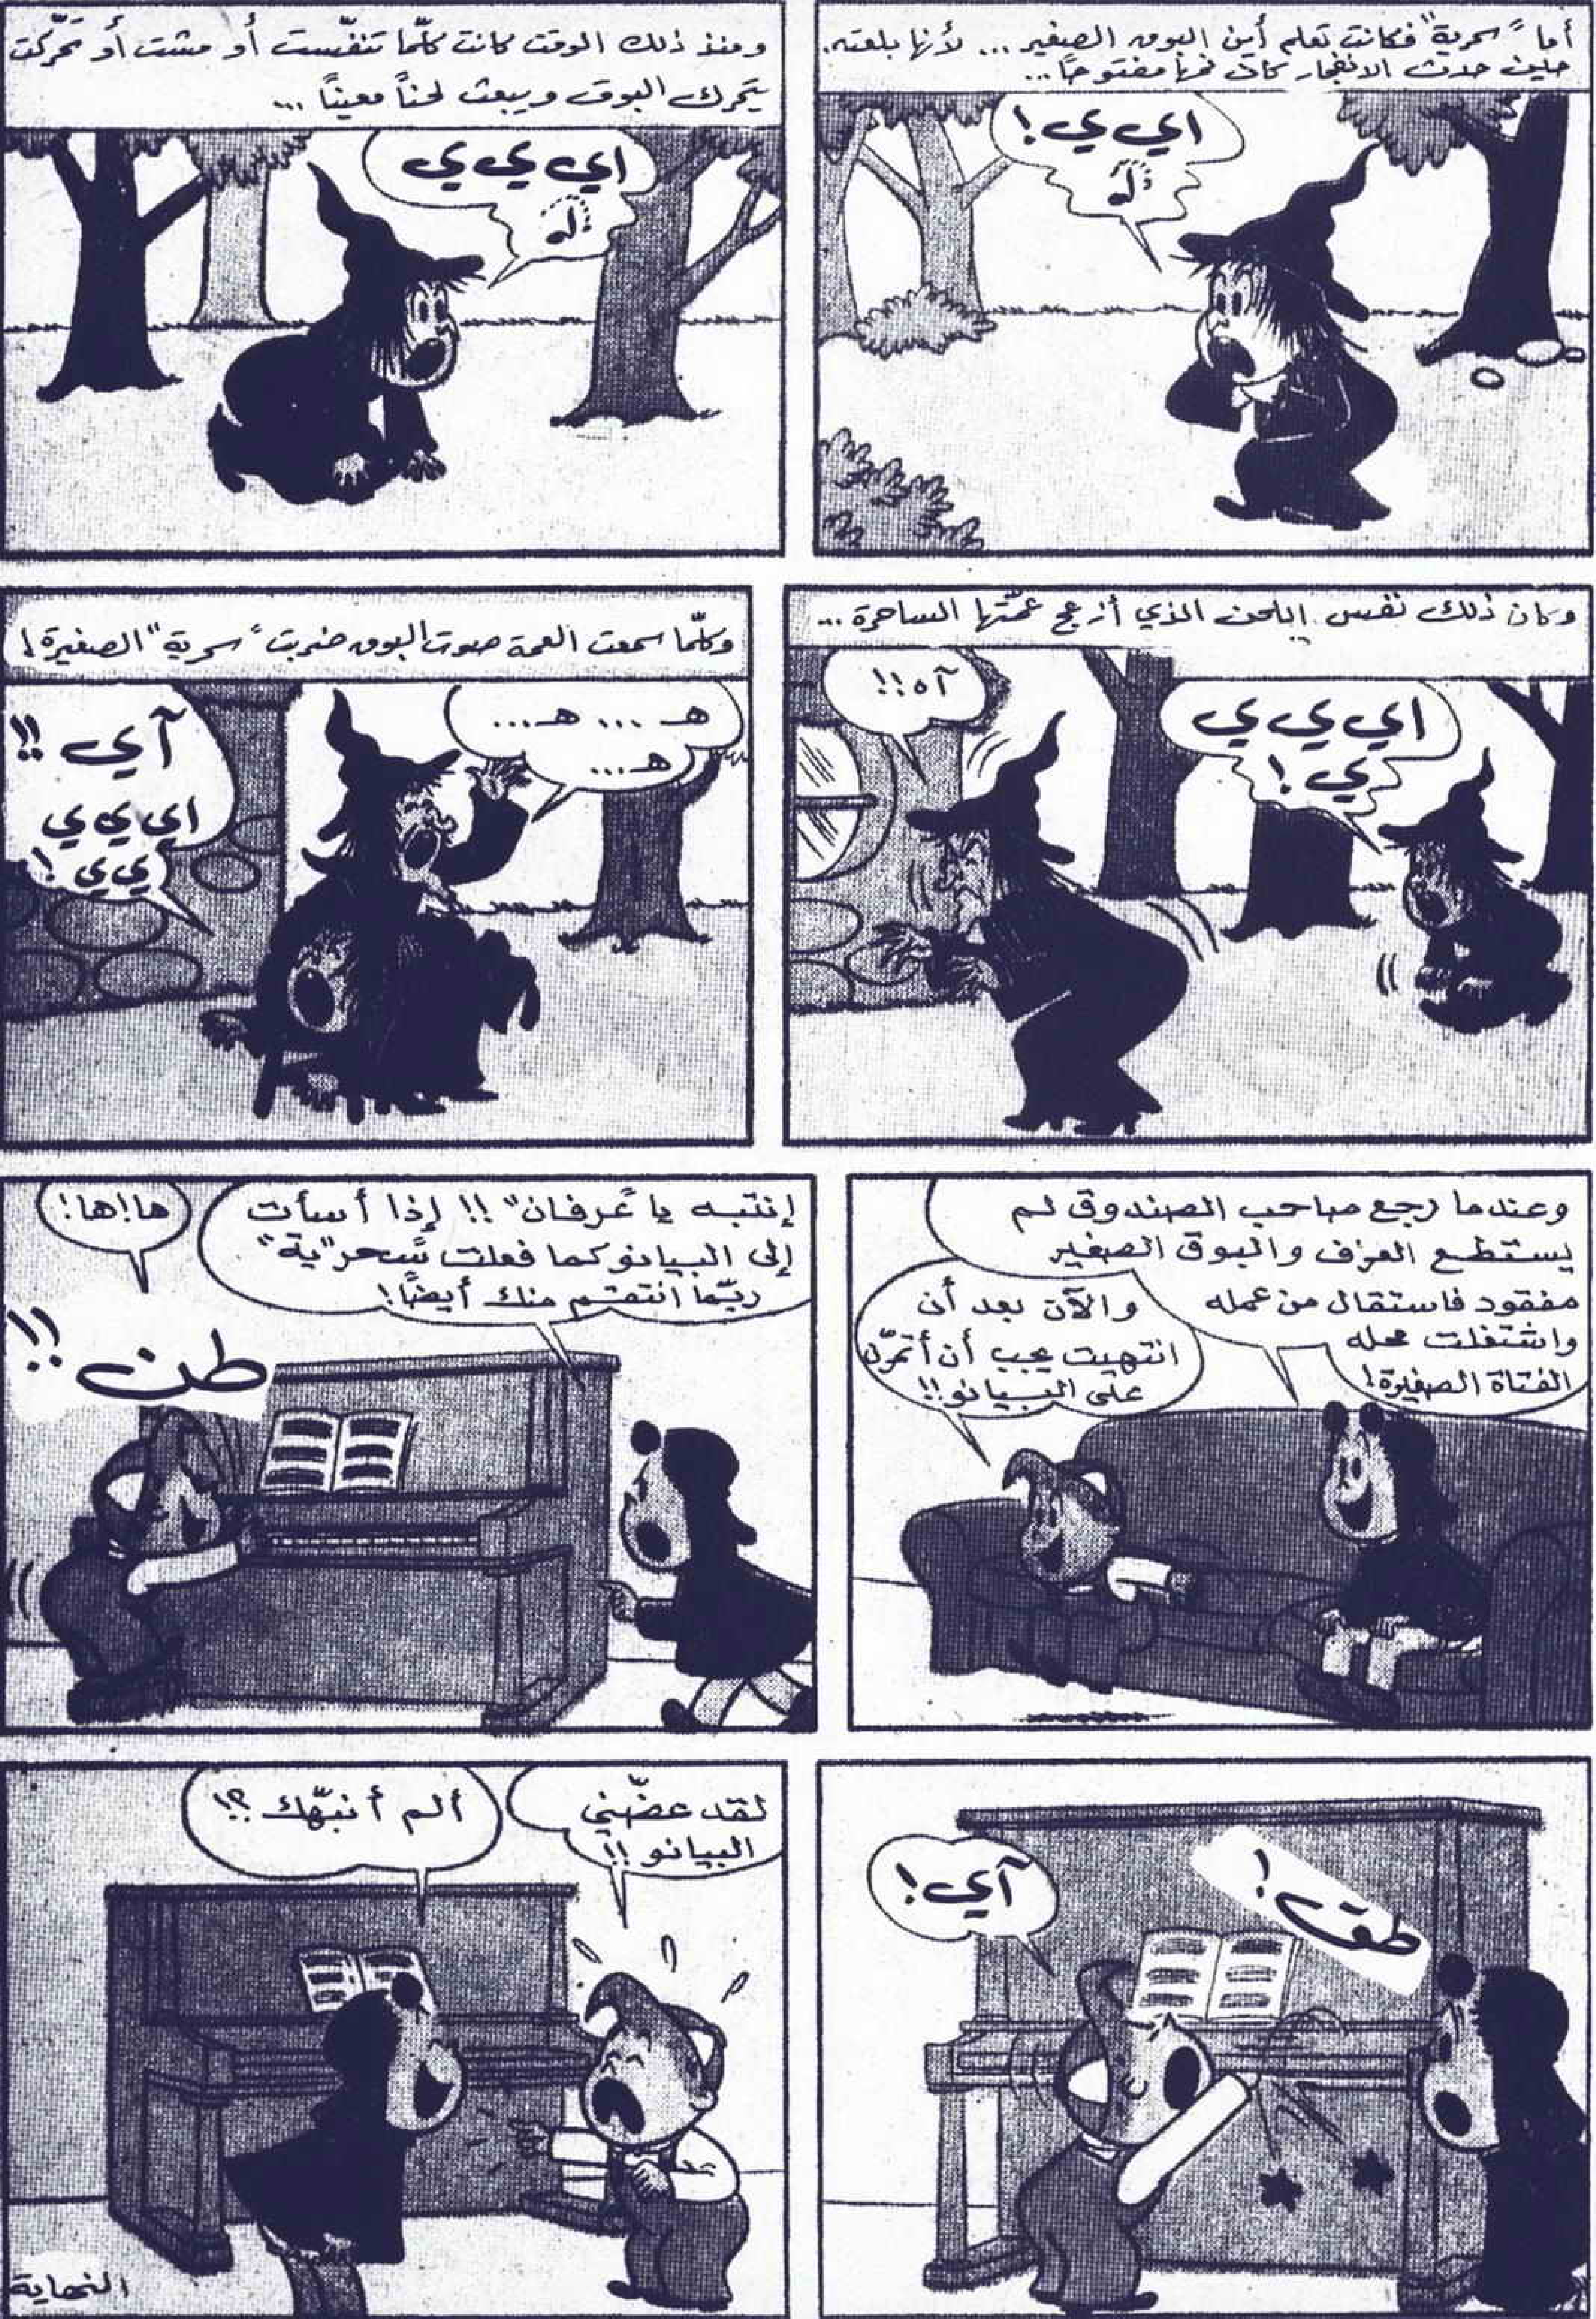 أما "سحرية" فكانت تعلم أين البوق الصغير ... لأنها بلعته.
حين حدث الانفجار كان فمها مفتوحاً...
اي ي ي!
ومنذ ذلك الوقت كانت كلّما تنفّست أو مشت أو تحرّكت
يتحرك البوق ويبعث لحناً معيناً ...
اي ي ي ي
وكان ذلك نفس اللحن الذي أزعج عمّتها الساحرة ...
اي ي ي ي
ي !
آه!!
وكلّما سمعت العمة صوت البوق ضربت "سحرية" الصغيرة!
هـ ... هـ ...
هـ ...
آي !!
اي ي ي ي
ي ي !
وعندما رجع صاحب الصندوق لم
يستطع العزف والبوق الصغير
مفقود فاستقال من عمله
واشتغلت محله
الفتاة الصغيرة!
والآن بعد أن
انتهيت يجب أن أتمرّن
على البيانو!!
إنتبه يا "عرفان" !! إذا أسأت
إلى البيانو كما فعلت "سحرية"
ربّما انتقم منك أيضاً!
ها!ها!
طن !!
طق !
آي !
لقد عضّني
البيانو !!
ألم أنبّهك ؟!
النهاية